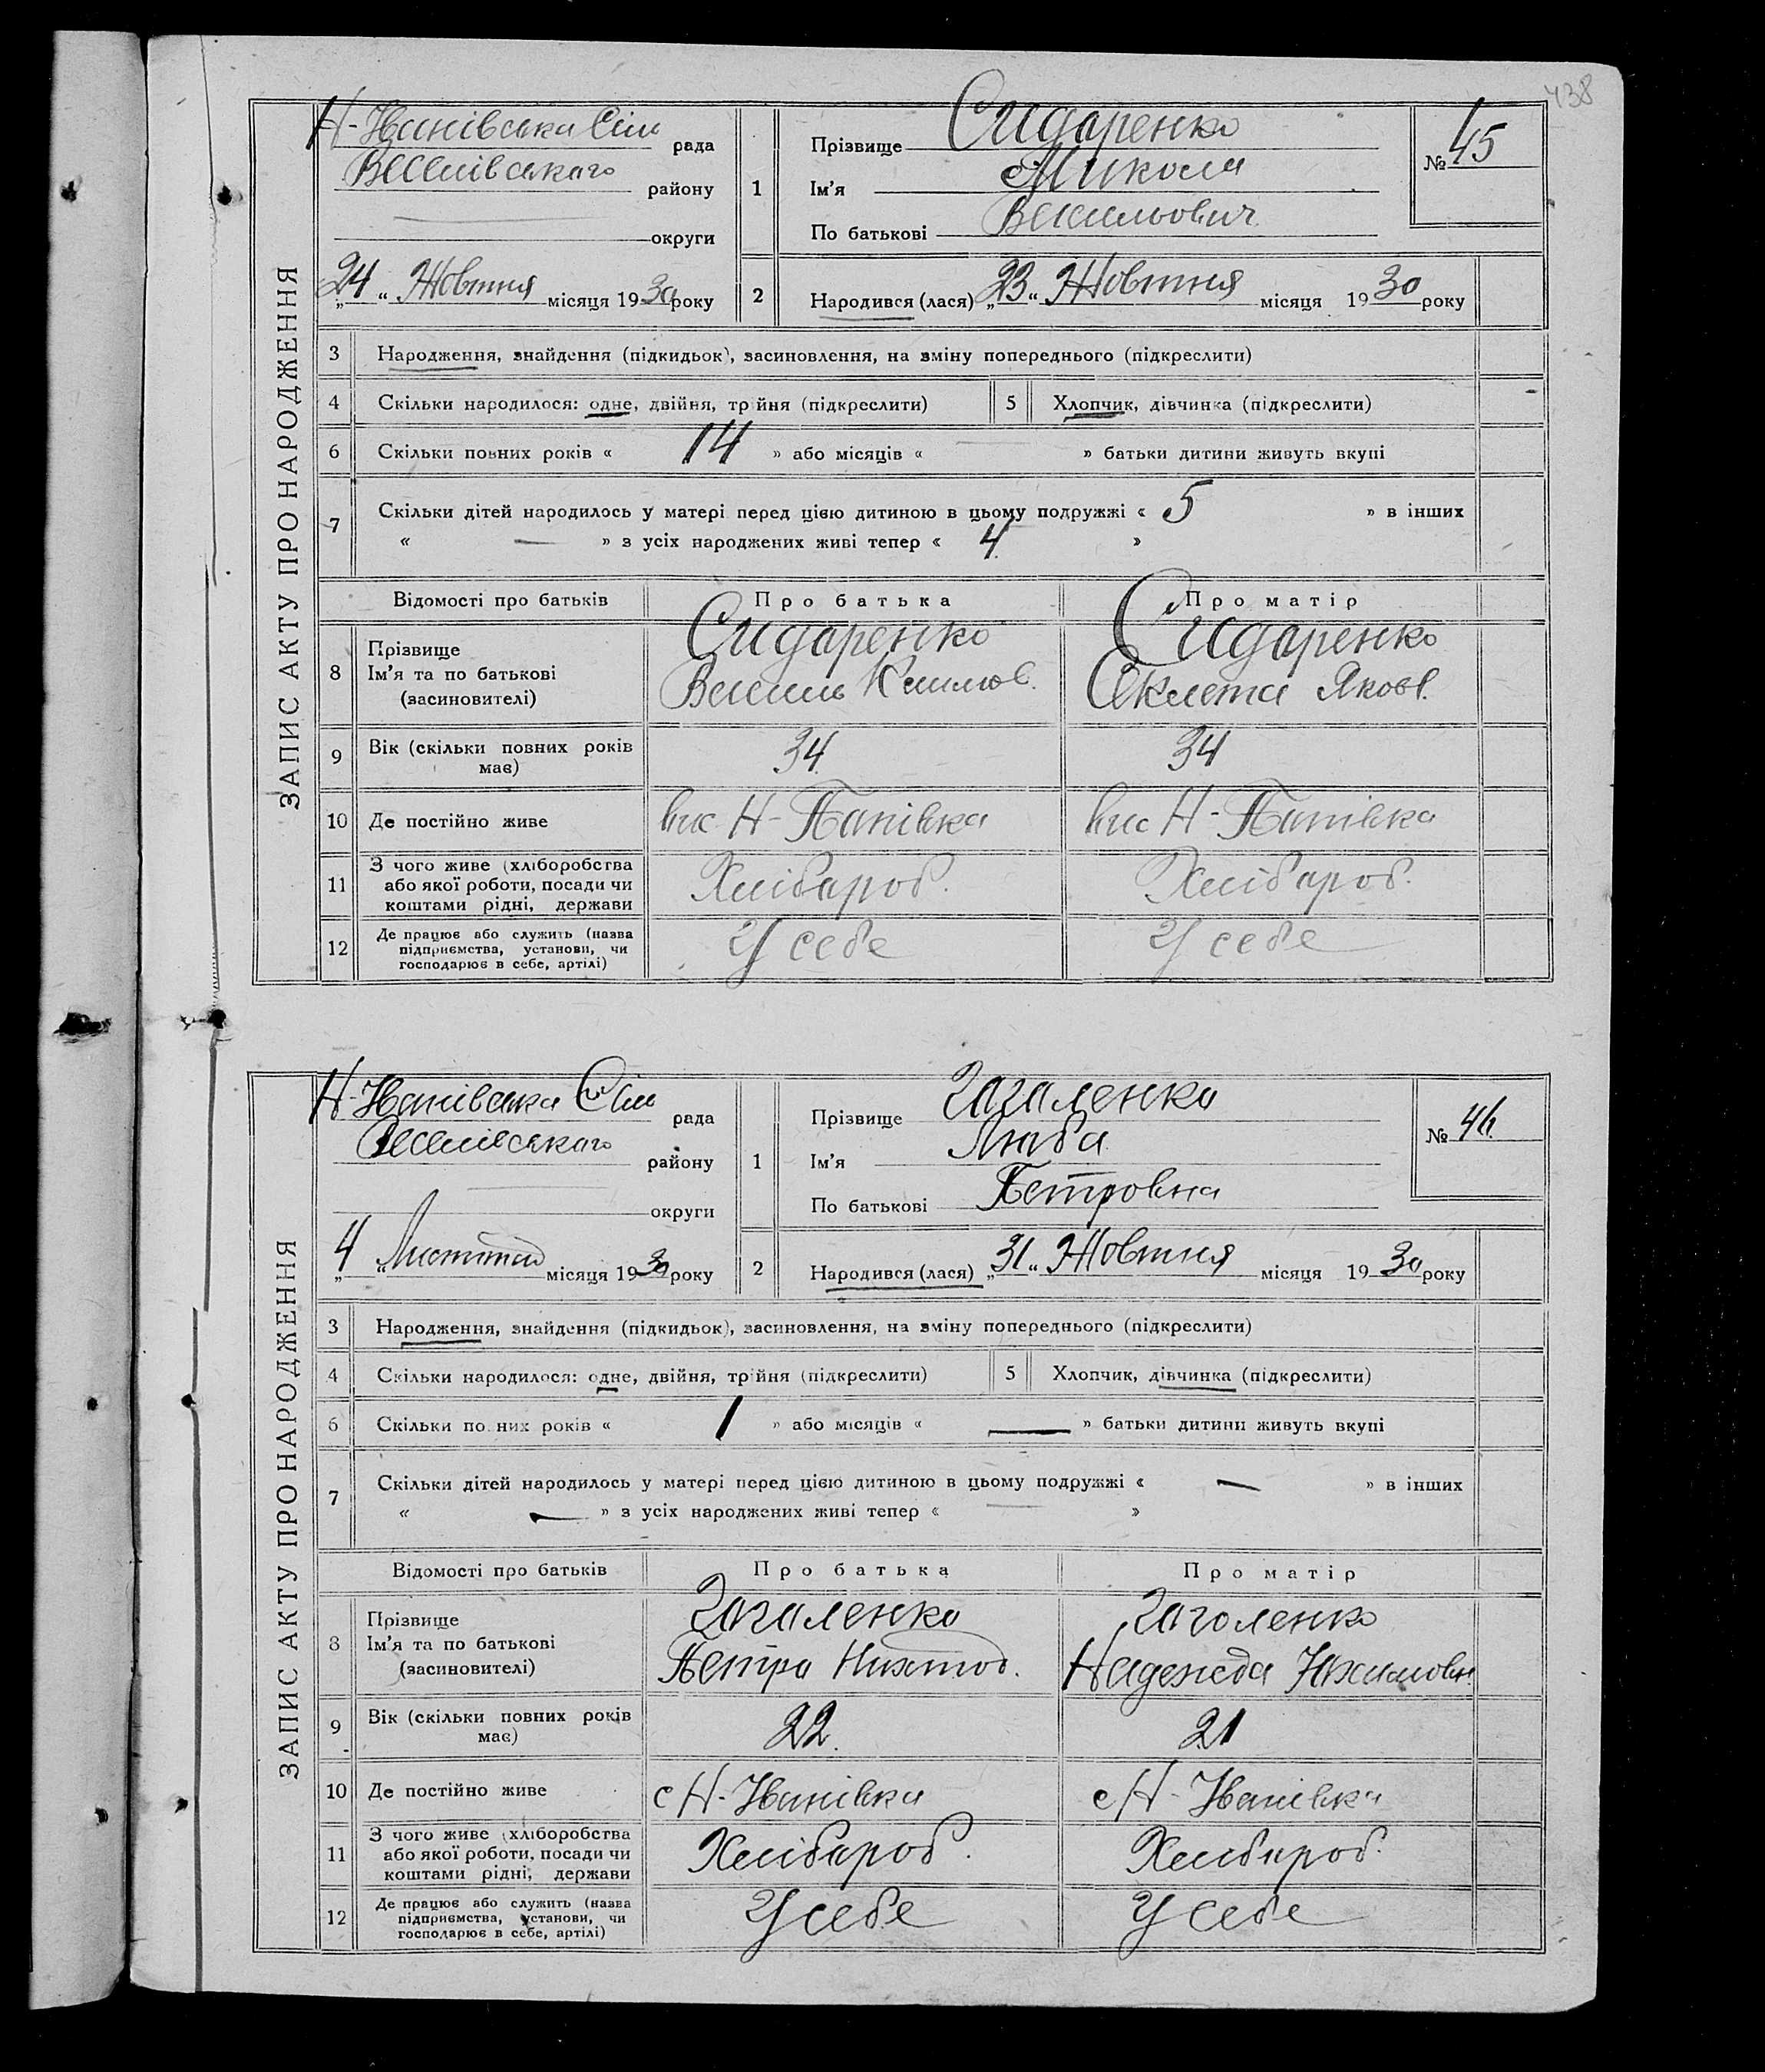 438
ЗАПИС АКТУ ПРО НАРОДЖЕННЯ
Н-Іванівська Сіль рада
Веселівського району
округи
24 " Жовтня місяця 1930 року
1
Прізвище Сидаренко
Ім'я Микола
По батькові Васильович
№ 45
2 Народився (лася) „23" Жовтня місяця 1930 року
3 Народження, знайдення (підкидьок), засиновлення, на зміну попереднього (підкреслити)
4 Скільки народилося: одне, двійня, трійня (підкреслити) 5 Хлопчик, дівчинка (підкреслити)
6 Скільки повних років « 14 » або місяців « — » батьки дитини живуть вкупі
7 Скільки дітей народилось у матері перед цією дитиною в цьому подружжі « 5 » в інших
« — » з усіх народжених живі тепер « 4 »
Відомості про батьків Про батька Про матір
8 Прізвище
Ім'я та по батькові
(засновителі)
Сидаренко
Василь Климов.
Сидаренко
Яковл.
9 Вік (скільки повних років
має) 34 34
10 Де постійно живе вис Н-Панівка вис Н-Панівка
11 З чого живе (хліборобства
або якої роботи, посади чи
коштами рідні, держави
Хлібароб. Хлібароб.
12 Де працює або служить (назва
підприємства, установи, чи
господарює в себе, артілі)
У себе У себе
ЗАПИС АКТУ ПРО НАРОДЖЕННЯ
Н-Іванівська Сіль рада
Веселівського району
округи
„4" Листопад місяця 1930 року
1
Прізвище Загаленко
Ім'я Люба
По батькові Петровна
№ 46
2 Народився (лася) „31" Жовтня місяця 1930 року
3 Народження, знайдення (підкидьок), засиновлення, на зміну попереднього (підкреслити)
4 Скільки народилося: одне, двійня, трійня (підкреслити) 5 Хлопчик, дівчинка (підкреслити)
6 Скільки повних років « 1 » або місяців « — » батьки дитини живуть вкупі
7 Скільки дітей народилось у матері перед цією дитиною в цьому подружжі « — » в інших
« — » з усіх народжених живі тепер « — »
Відомості про батьків Про батька Про матір
8 Прізвище
Ім'я та по батькові
(засиновителі)
Загаленко
Петро
Заголенко
Надежда
9 Вік (скільки повних років
має) 22. 21
10 Де постійно живе с Н-Іванівка с Н-Іванівка
11 З чого живе (хліборобства
або якої роботи, посади чи
коштами рідні, держави
Хлібароб. Хлібароб.
12 Де працює або служить (назва
підприємства, установи, чи
господарює в себе, артілі)
У себе У себе